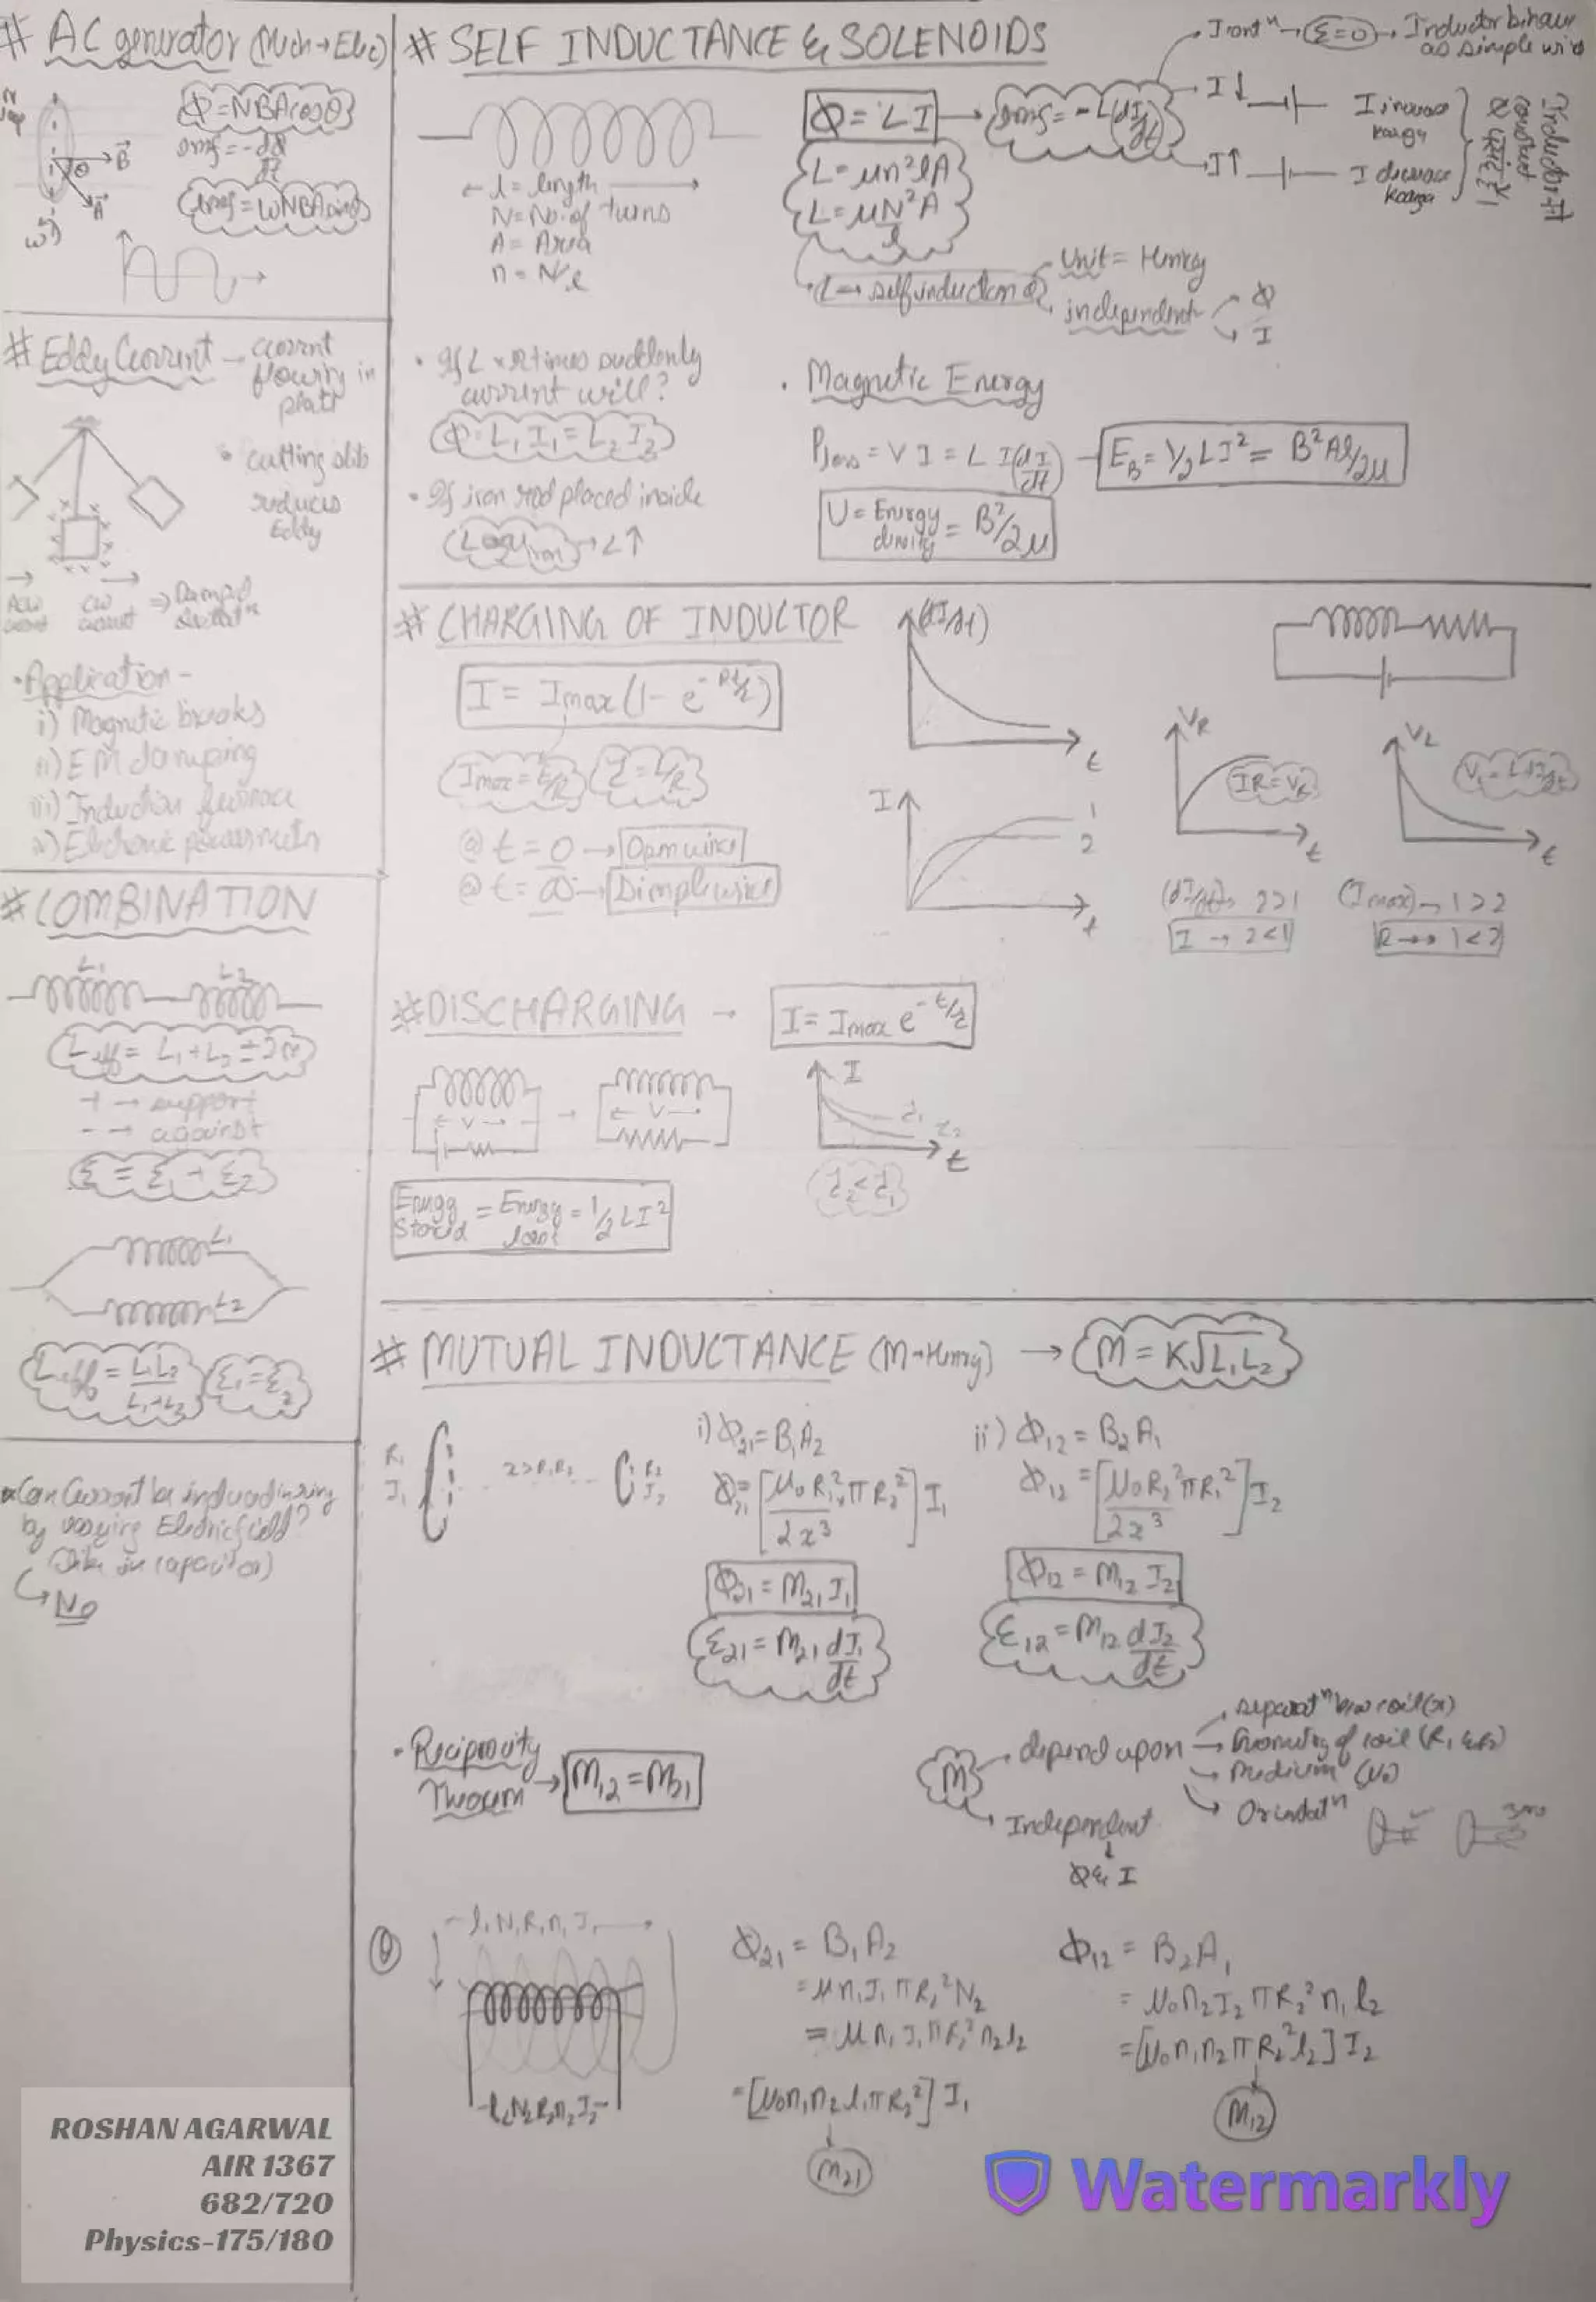 # AC generator (Mech→Elec)
Φ=NBAcosθ
emf=-dΦ/dt
emf=ωNBAsinθ
θ
B
A
ω
# Eddy Current → current
flowing in
plate
• cutting slits
reduces
Eddy
ACW current
CW current
⇒ Damped
• Application -
i) Magnetic breaks
ii) EM damping
iii) Induction furnace
iv) Electronic powermeter
# COMBINATION
L1 L2
Leff = L1+L2 ± 2M
+ → support
- → against
ε = ε1 + ε2
L1
L2
Leff = L1L2/L1+L2
ε1=ε2
Can Current be induced in ring
by varying Electric field?
(like in capacitor)
↳ No
# SELF INDUCTANCE & SOLENOIDS
l = length
N = No. of turns
A = Area
n = N/l
Φ = LI → emf = -L(dI/dt)
I const^n → ε=0 → Inductor behave
as simple wire
I↓
I increase
karega
I↑
I decrease
karega
L = μn²lA
L = μN²A/l
L → self induction
Unit = Henry
independent → Φ
→ I
• If L x times suddenly
current will?
Φ = L1 I1 = L2 I2
• If iron rod placed inside
L∝μiron → L↑
• Magnetic Energy
Ploss = V I = L I(dI/dt) → EB = 1/2 LI² = B²Al/2μ
U = Energy density = B²/2μ
# CHARGING OF INDUCTOR
I = Imax (1 - e^-Rt/L)
Imax = E/R
τ = L/R
@ t = 0 → Open wire
@ t = ∞ → Simple wire
(dI/dt)
t
I
1
2
t
VR
IR = VR
t
VL
VL = L dI/dt
t
(dI/dt) → 2>1
I → 2<1
(Imax) → 1>2
R → 1<2
# DISCHARGING → I = Imax e^-t/τ
← V →
→
← V →
I
τ1
τ2
t
τ2 < τ1
Energy Stored = Energy lost = 1/2 LI²
# MUTUAL INDUCTANCE (M→Henry) → M = K√L1L2
R1
I1
R2
I2
i) Φ21 = B1A2
Φ21 = [μ0R1²πR2²/2x³] I1
Φ21 = M21 I1
ε21 = M21 dI1/dt
ii) Φ12 = B2A1
Φ12 = [μ0R2²πR1²/2x³] I2
Φ12 = M12 I2
ε12 = M12 dI2/dt
• Reciprocity
Theorem → M12 = M21
M
depend upon
separat^n b/w coil (x)
Geometry of coil (R1 & R2)
→ medium (μ0)
→ Orientat^n
Independent
Φ & I
l1N1R1n1I1
l2N2R2n2I2
Φ21 = B1A2
= μn1I1πR2²N2
= μn1I1πR2²n2l2
= [μ0n1n2l1πR2²] I1
M21
Φ12 = B2A1
= μ0n2I2πR2²n1l2
= [μ0n1n2πR2²l2] I2
M12
ROSHAN AGARWAL
AIR 1367
682/720
Physics-175/180
Watermarkly